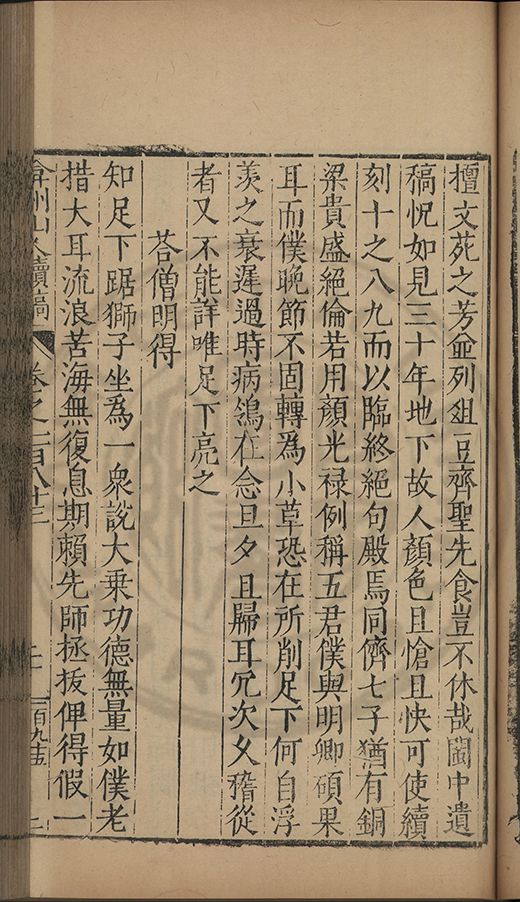 擅文苑之芳並列俎豆齊聖先食豈不休哉閩中遺
稿怳如見三十年地下故人顏色且愴且快可使續
刻十之八九而以臨終絕句殿焉同儕七子猶有銅
梁貴盛絕倫若用顏光祿例稱五君僕與明卿碩果
耳而僕晚節不固轉為小草恐在所削足下何自浮
羨之衰遲過時病鴿在念旦夕且歸耳冗次乆稽從
者又不能詳唯足下亮之
荅僧明得
知足下踞獅子坐為一衆說大乗功德無量如僕老
措大耳流浪苦海無復息期賴先師拯拔俾得假一
弇州山人續稿 卷之一百八十三